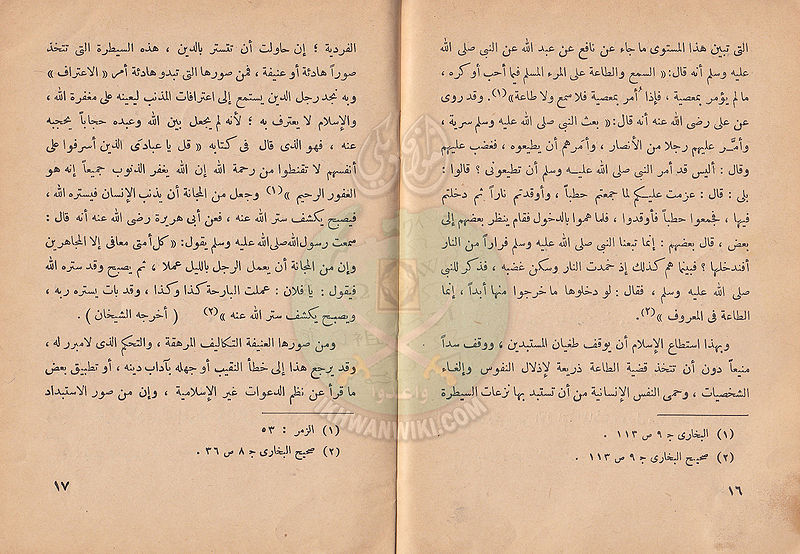 التى تبين هذا المستوى ما جاء عن نافع عن عبد الله عن النبى صلى الله
عليه وسلم أنه قال: « السمع والطاعة على المرء المسلم فيما أحب أو كره ،
ما لم يؤمر بمعصية ، فإذا أُمر بمعصية فلا سمع ولا طاعة »(١). وقد روى
عن على رضى الله عنه أنه قال: « بعث النبى صلى الله عليه وسلم سرية ،
وأمَّـر عليهم رجلا من الأنصار ، وأمرهم أن يطيعوه ، فغضب عليهم
وقال : أليس قد أمر النبى صلى الله عليــه وسلم أن تطيعونى ؟ قالوا :
بلى : قال : عزمت عليكم لما جمعتم حطباً ، وأوقدتم ناراً ثم دخلتم
فيها ، فجمعوا حطباً فأوقدوا ، فلما هموا بالدخول فقام ينظر بعضهم إلى
بعض ، قال بعضهم : إنما تبعنا النبى صلى الله عليه وسلم فراراً من النار
أفندخلها ؟ فبينما هم كذلك إذ خمدت النار وسكن غضبه ، فذكر للنبى
صلى الله عليه وسلم ، فقال : لو دخلوها ما خرجوا منها أبداً ، إنما
الطاعة فى المعروف »(٢).
وبهذا استطاع الإسلام أن يوقف طغيان المستبدين ، ووقف سداً
منيعاً دون أن تتخذ قضية الطاعة ذريعة لإذلال النفوس وإلغاء
الشخصيات ، وحمى النفس الإنسانية من أن تستبد بها نزعات السيطرة
(١) البخارى ج ٩ ص ١١٣ .
(٢) صحيح البخارى ج ٩ ص ١١٣ .
١٦
الفردية ؛ إن حاولت أن تتستر بالدين ، هذه السيطرة التى تتخذ
صوراً هادئة أو عنيفة ، فمن صورها التى تبدو هادئة أمر « الاعتراف »
وبه نجد رجل الدين يستمع إلى اعترافات المذنب ليعينه على مغفرة الله ،
والإسلام لا يعترف به ؛ لأنه لم يجعل بين الله وعبده حجاباً يحجبه
عنه ، فهو الذى قال فى كتابه « قل يا عبادى الذين أسرفوا على
أنفسهم لا تقنطوا من رحمة الله إن الله يغفر الذنوب جميعاً إنه هو
الغفور الرحيم »(١) وجعل من المجانة أن يذنب الإنسان فيستره الله ،
فيصبح يكشف ستر الله عنه ، فعن أبى هريرة رضى الله عنه أنه قال :
سمعت رسول الله صلى الله عليه وسلم يقول: « كل أمتى معافى إلا المجاهرين
وإن من المجانة أن يعمل الرجل بالليل عملا ، ثم يصبح وقد ستره الله
فيقول : يا فلان : عملت البارحة كذا وكذا ، وقد بات يستره ربه ،
ويصبح يكشف ستر الله عنه »(٢) ( أخرجه الشيخان ) .
ومن صورها العنيفة التكاليف المرهقة ، والتحكم الذى لا مبرر له ،
وقد يرجع هذا إلى خطأ النقيب أو جهله بآداب دينه ، أو تطبيق بعض
ما قرأ عن نظم الدعوات غير الإسلامية ، وإن من صور الاستبداد
(١) الزمر : ٥٣
(٢) صحيح البخارى ج ٨ ص ٣٦ .
١٧
وأعدوا
IKHWANWIKI.COM